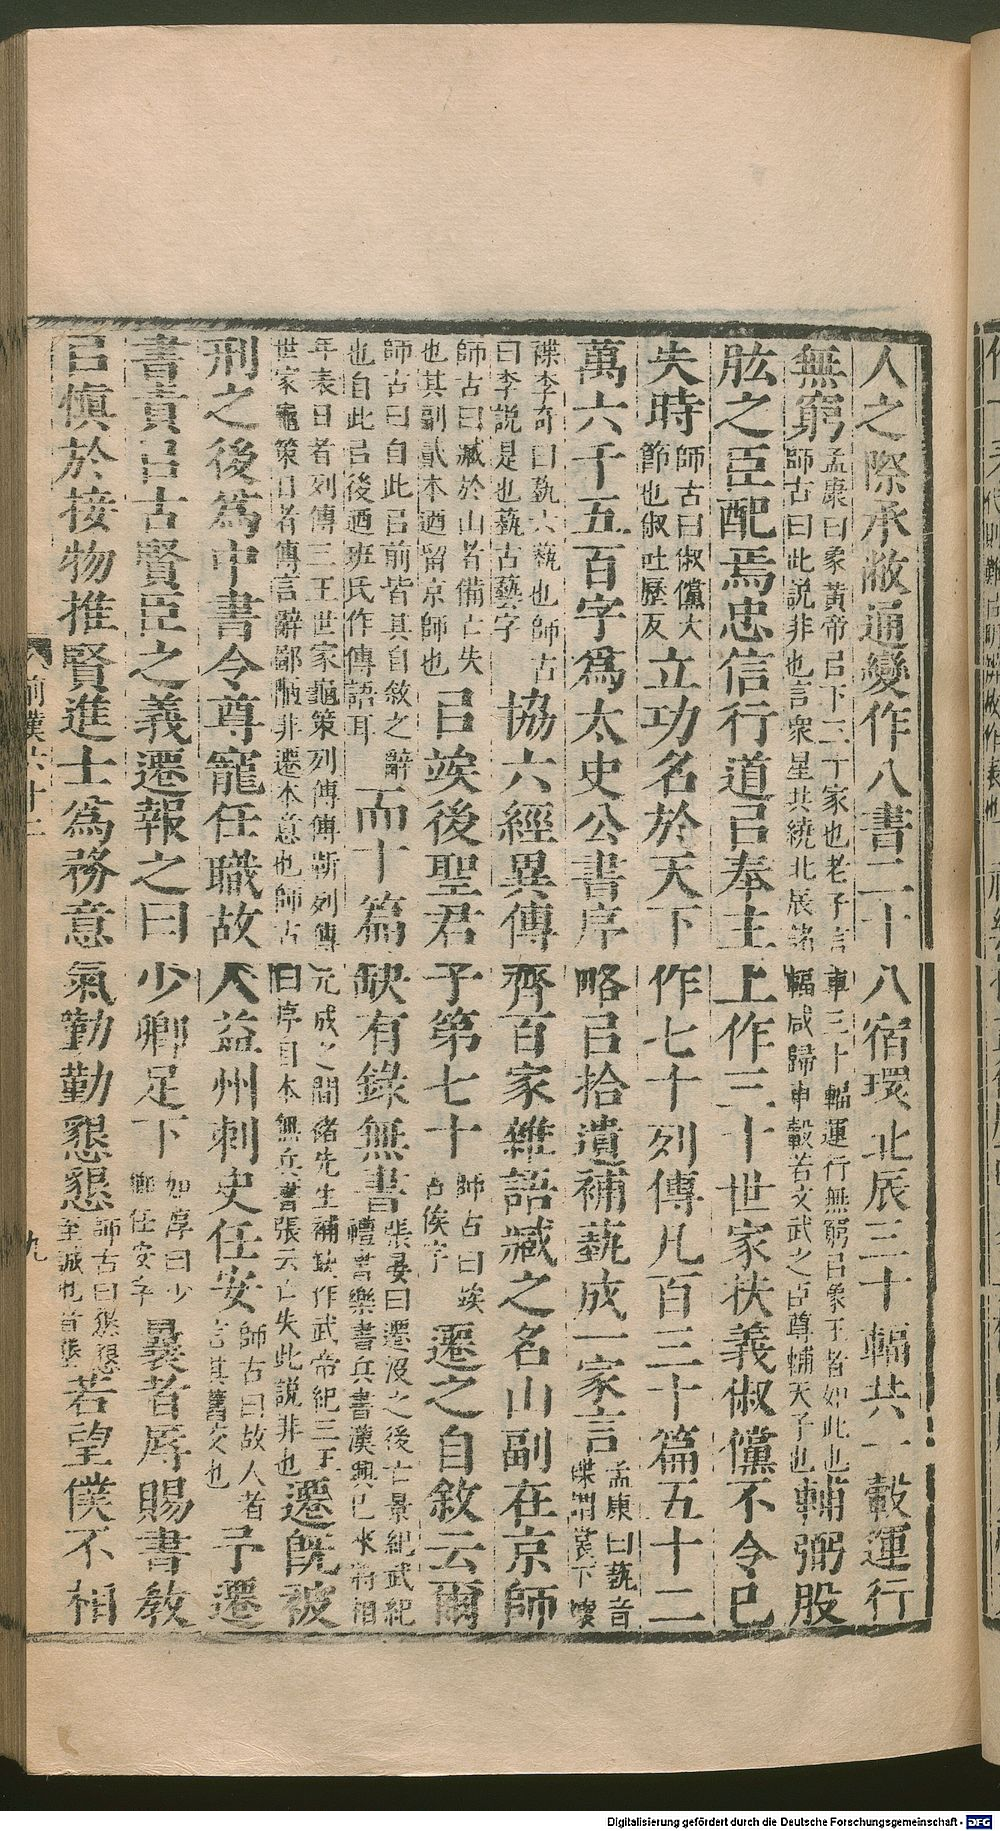 人之際承敝通變作八書二十八宿環北辰三十輻共一轂運行
無窮孟康曰象黃帝㠯下三十家也老子言車三十輻運行無窮㠯象王者如此也師古曰此說非也言衆星共繞北辰諸輻咸歸車轂若文武之臣尊輔天子也輔弼股
肱之臣配焉忠信行道㠯奉主上作三十世家扶義俶儻不令已
失時師古曰俶儻大節也俶吐歷反立功名於天下作七十列傳凡百三十篇五十二
萬六千五百字爲太史公書序略㠯拾遺補蓺成一家言孟康曰蓺音楪謂裳下
楪李奇曰蓺六蓺也師古曰李說是也蓺古藝字協六經異傳齊百家雜語臧之名山副在京師
師古曰臧於山者備亡失也其副貳本迺留京師也㠯竢後聖君子第七十師古曰竢古俟字遷之自敘云爾
師古曰自此㠯前皆其自敘之辭也自此㠯後迺班氏作傳語耳而十篇缺有錄無書張晏曰遷沒之後亡景紀武紀禮書樂書兵書漢興已來將相
年表日者列傳三王世家龜策列傳傅靳列傳元成之間褚先生補缺作武帝紀三王世家龜策日者傳言辭鄙陋非遷本意也師古曰序目本無兵書張云亡失此說非也遷旣被
刑之後爲中書令尊寵任職故人益州刺史任安師古曰故人者言其舊交也予遷
書責㠯古賢臣之義遷報之曰少卿足下如淳曰少卿任安字曩者辱賜書敎
㠯愼於接物推賢進士爲務意氣勤勤懇懇師古曰懇懇至誠也音墾若望僕不相
前漢六十二 九
Digitalisierung gefördert durch die Deutsche Forschungsgemeinschaft - DFG